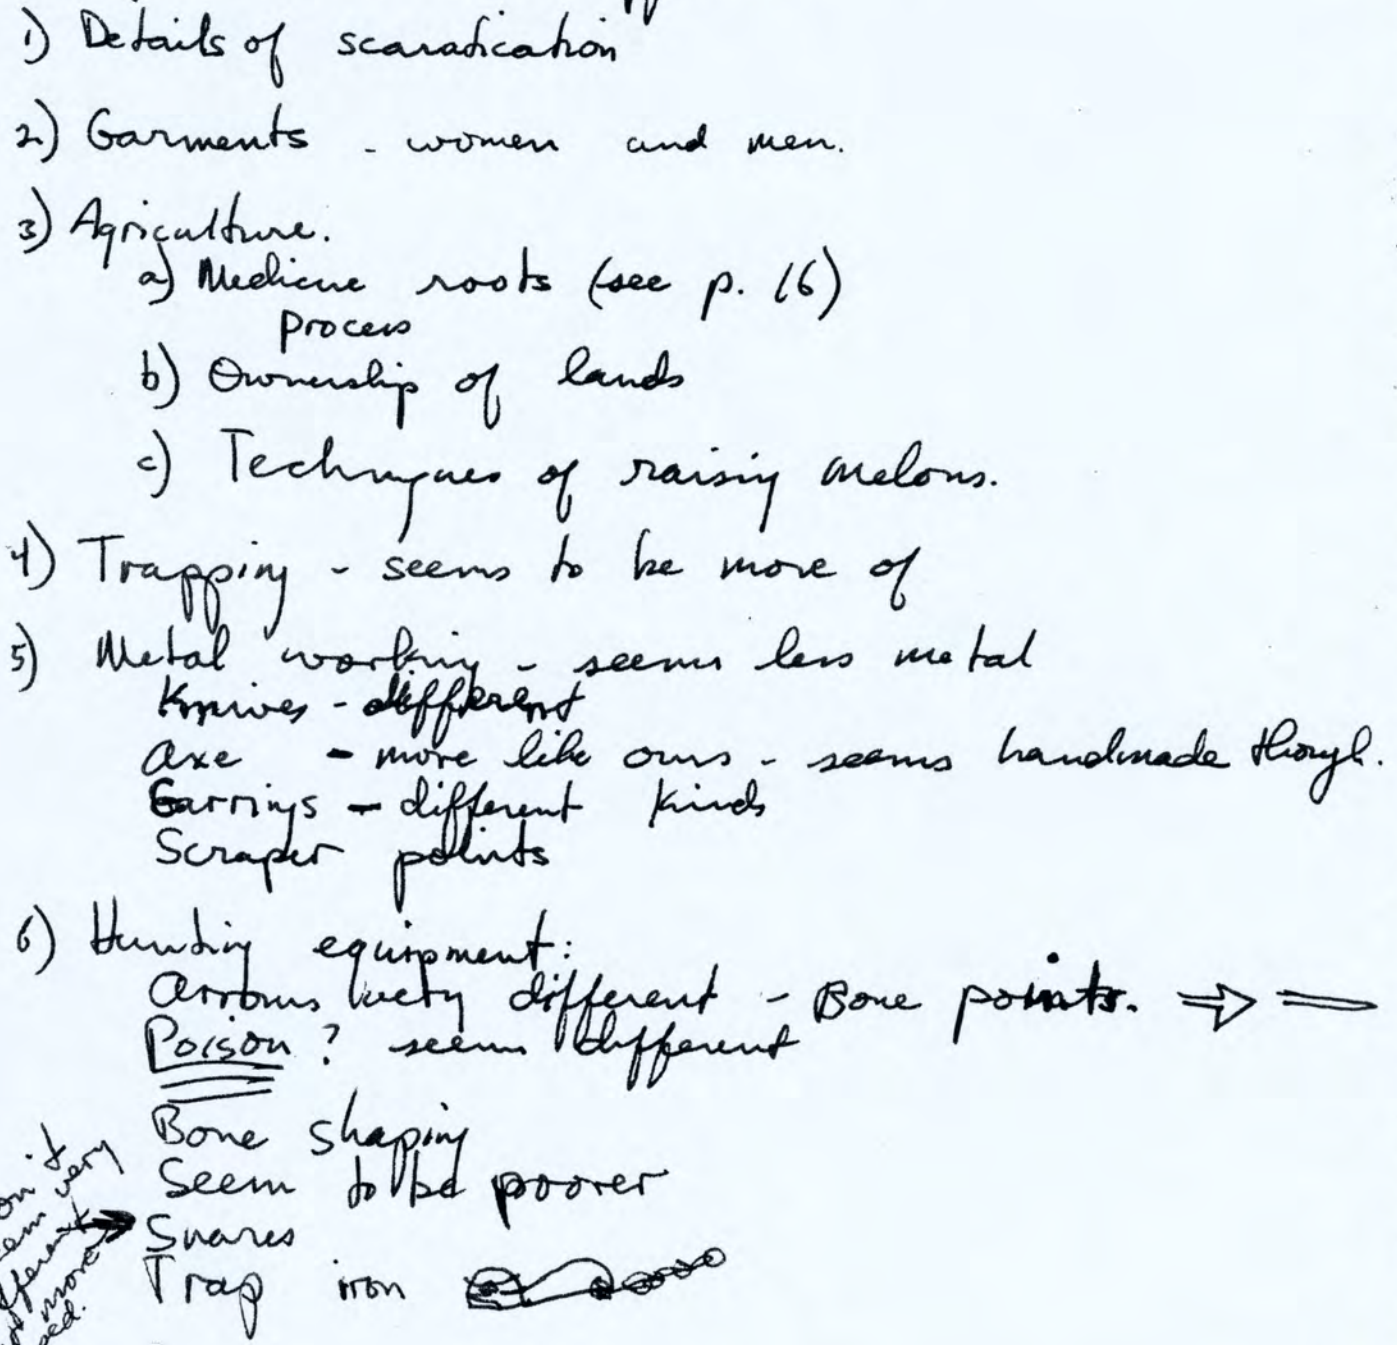 1) Details of scaratication
2) Garments - women and men.
3) Agriculture.
a) Medicine roots (see p. 16)
process
b) Ownership of lands
c) Techniques of raising melons.
4) Trapping - seems to be more of
5) Metal working - seems less metal
Knives - different
Axe - more like ours - seems handmade though.
Earrings - different kinds
Scraper points
6) Hunting equipment:
Arrows very different - Bone points.
Poison? seems different
Bone shaping
Seem to be poorer
Snares
Trap iron
very
more